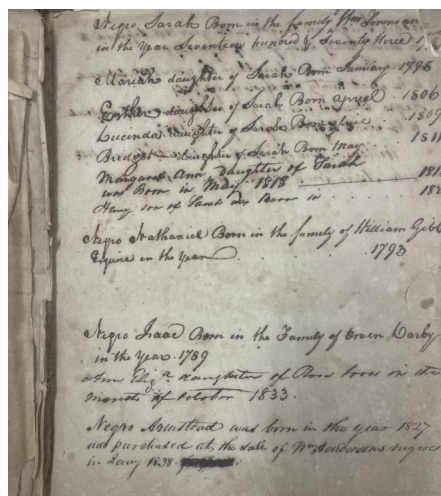 Negro Sarah Born in the family Wm
in the year Seventeen hundred & Seventy three
Mariah daughter of Sarah Born January 1798
Esther daughter of Sarah Born april 1806
Lucinda daughter of Sarah Born 1809
Bridget daughter of Sarah Born May 1811
Margaret Ann Daughter of Sarah
was Born in May 1818 181
Henry son of Sarah was Born in 182
Negro Nathaniel Born in the family of William Gibb
Esquire in the year 1793
Negro Isaac Born in the Family of Owen Darby
in the Year 1789
Ann Eliza daughter of born on the
month of october 1833.
Negro Armstead was born in the year 1827
was purchased at the sale of Wm Hendersons negroes
in Jany 1838